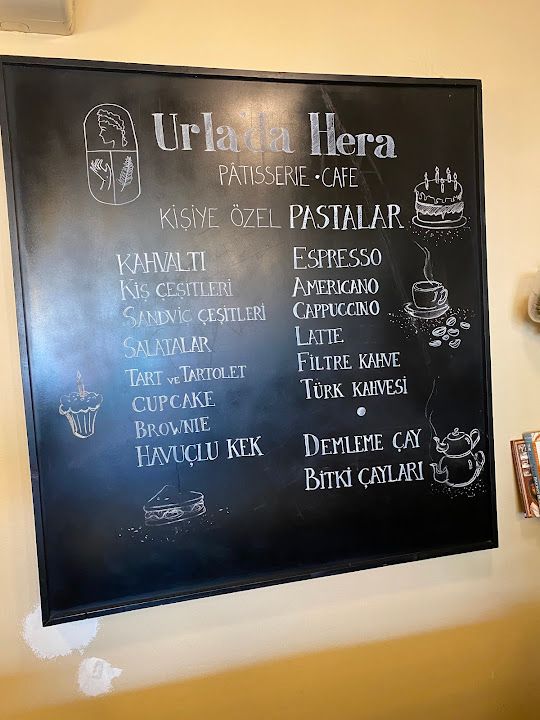 Urla'da Hera
PÂTISSERIE • CAFE
KİŞİYE ÖZEL PASTALAR
KAHVALTI
KİŞ ÇEŞİTLERİ
SANDVİC ÇEŞİTLERİ
SALATALAR
TART VE TARTOLET
CUPCAKE
BROWNIE
HAVUÇLU KEK
ESPRESSO
AMERICANO
CAPPUCCINO
LATTE
FILTRE KAHVE
TÜRK KAHVESİ
DEMLEME ÇAY
BİTKİ ÇAYLARI